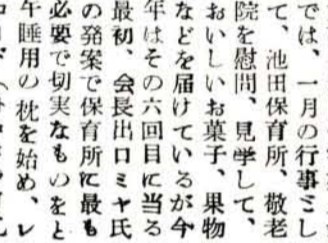 では、一月の行事とし
て、池田保育所、敬老
院を慰問、見学して、
おいしいお菓子、果物
などを届けているが今
年はその六回目に当る
最初、会長出口ミヤ氏
の発案で保育所に最も
必要で切実なものをと
午睡用の枕を始め、レ